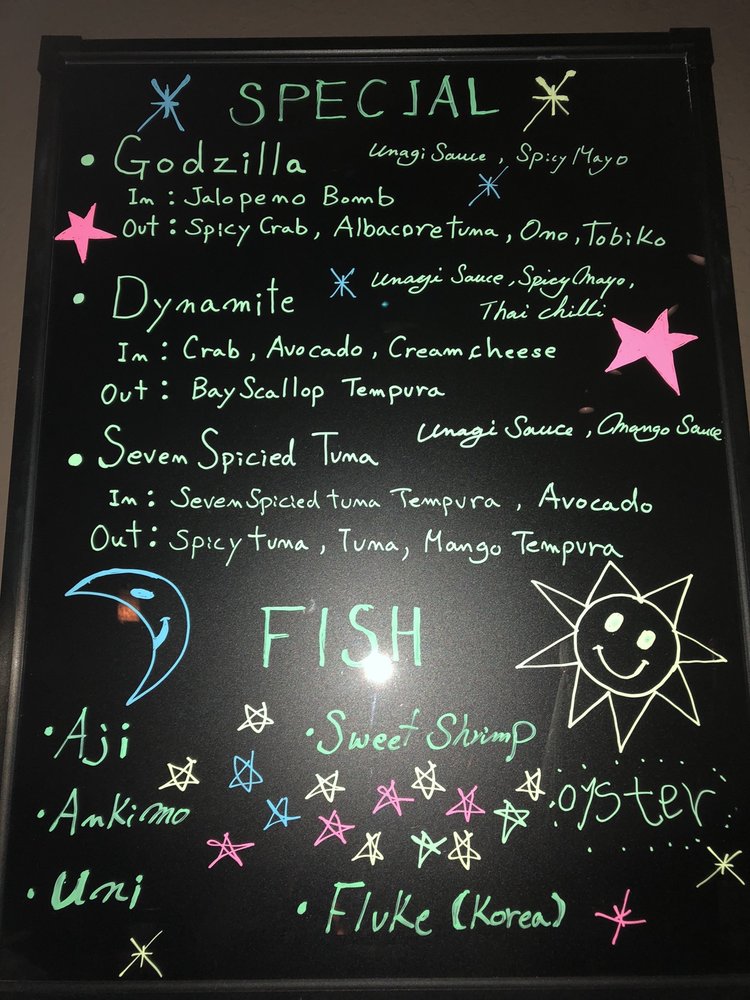 SPECIAL
• Godzilla
Unagi Sauce, Spicy Mayo
In: Jalopeno Bomb
Out: Spicy Crab, Albacore tuna, Ono, Tobiko
• Dynamite
Unagi Sauce, Spicy mayo,
Thai chilli
In: Crab, Avocado, Cream cheese
Out: Bay Scallop Tempura
Unagi Sauce, mango Sauce
• Seven Spicied Tuna
In: Seven Spicied tuna Tempura, Avocado
Out: Spicy tuna, Tuna, Mango Tempura
FISH
• Aji
• Sweet Shrimp
• Ankimo
oyster
• uni
• Fluke (Korea)